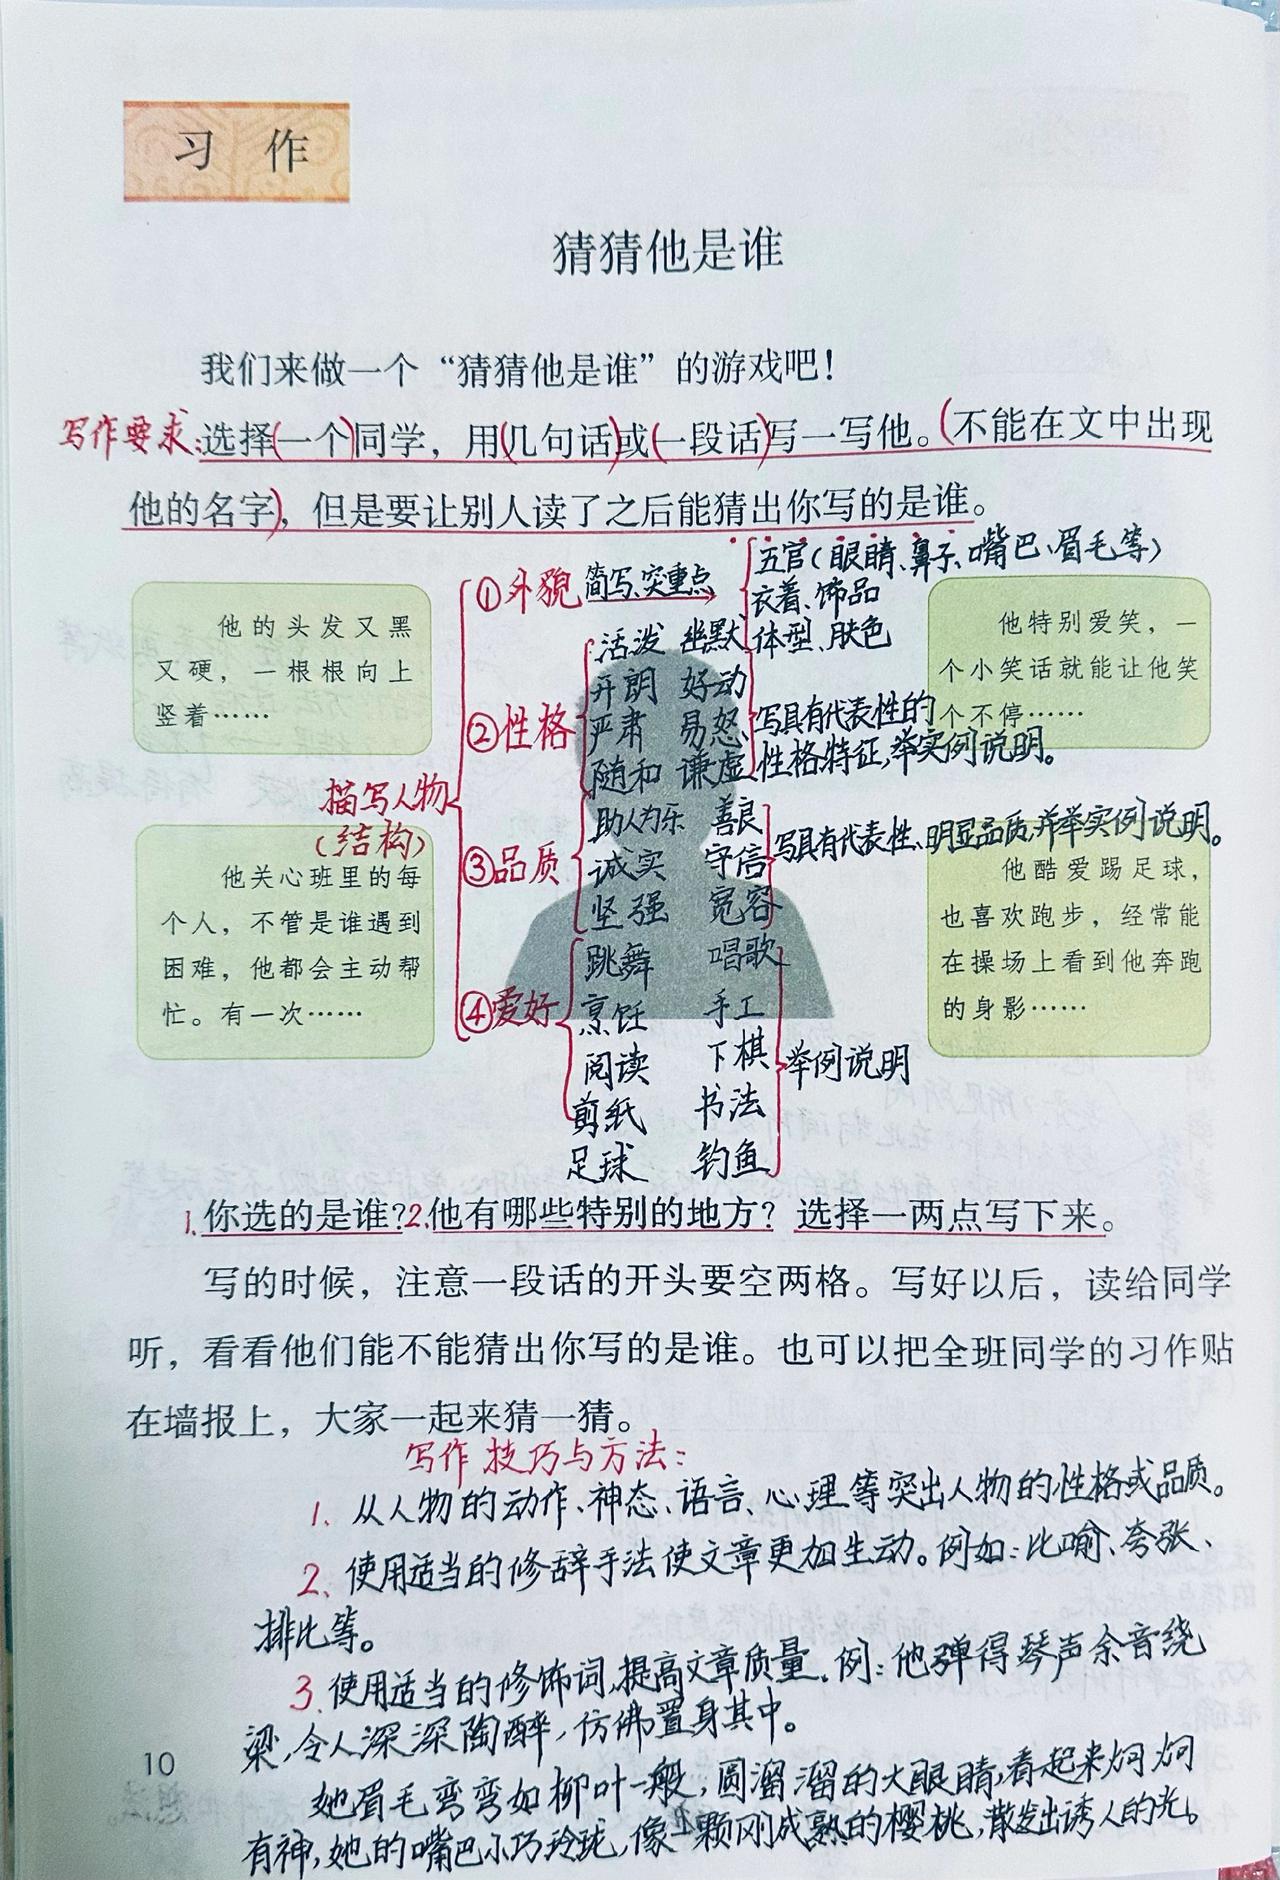 习 作
猜猜他是谁
我们来做一个“猜猜他是谁”的游戏吧！
写作要求:选择(一个)同学，用(几句话)或(一段话)写一写他。(不能在文中出现
他的名字)，但是要让别人读了之后能猜出你写的是谁。
他的头发又黑
又硬，一根根向上
竖着……
他关心班里的每
个人，不管是谁遇到
困难，他都会主动帮
忙。有一次……
描写人物
(结构)
①外貌 简写、突重点
五官(眼睛、鼻子、嘴巴、眉毛等)
衣着、饰品
体型、肤色
②性格
活泼 幽默
开朗 好动
严肃 易怒
随和 谦虚
写具有代表性的
性格特征,举实例说明。
③品质
助人为乐 善良
诚实 守信
坚强 宽容
写具有代表性、明显品质,并举实例说明。
④爱好
跳舞 唱歌
烹饪 手工
阅读 下棋
剪纸 书法
足球 钓鱼
举例说明
他特别爱笑，一
个小笑话就能让他笑
个不停……
他酷爱踢足球，
也喜欢跑步，经常能
在操场上看到他奔跑
的身影……
1.你选的是谁?2.他有哪些特别的地方？选择一两点写下来。
写的时候，注意一段话的开头要空两格。写好以后，读给同学
听，看看他们能不能猜出你写的是谁。也可以把全班同学的习作贴
在墙报上，大家一起来猜一猜。
写作技巧与方法:
1. 从人物的动作、神态、语言、心理等突出人物的性格或品质。
2. 使用适当的修辞手法使文章更加生动。例如:比喻、夸张、
排比等。
3. 使用适当的修饰词,提高文章质量. 例:他弹得琴声余音绕
梁,令人深深陶醉,仿佛置身其中。
她眉毛弯弯如柳叶一般,圆溜溜的大眼睛,看起来炯炯
有神,她的嘴巴小巧玲珑,像一颗刚成熟的樱桃,散发出诱人的光。
10